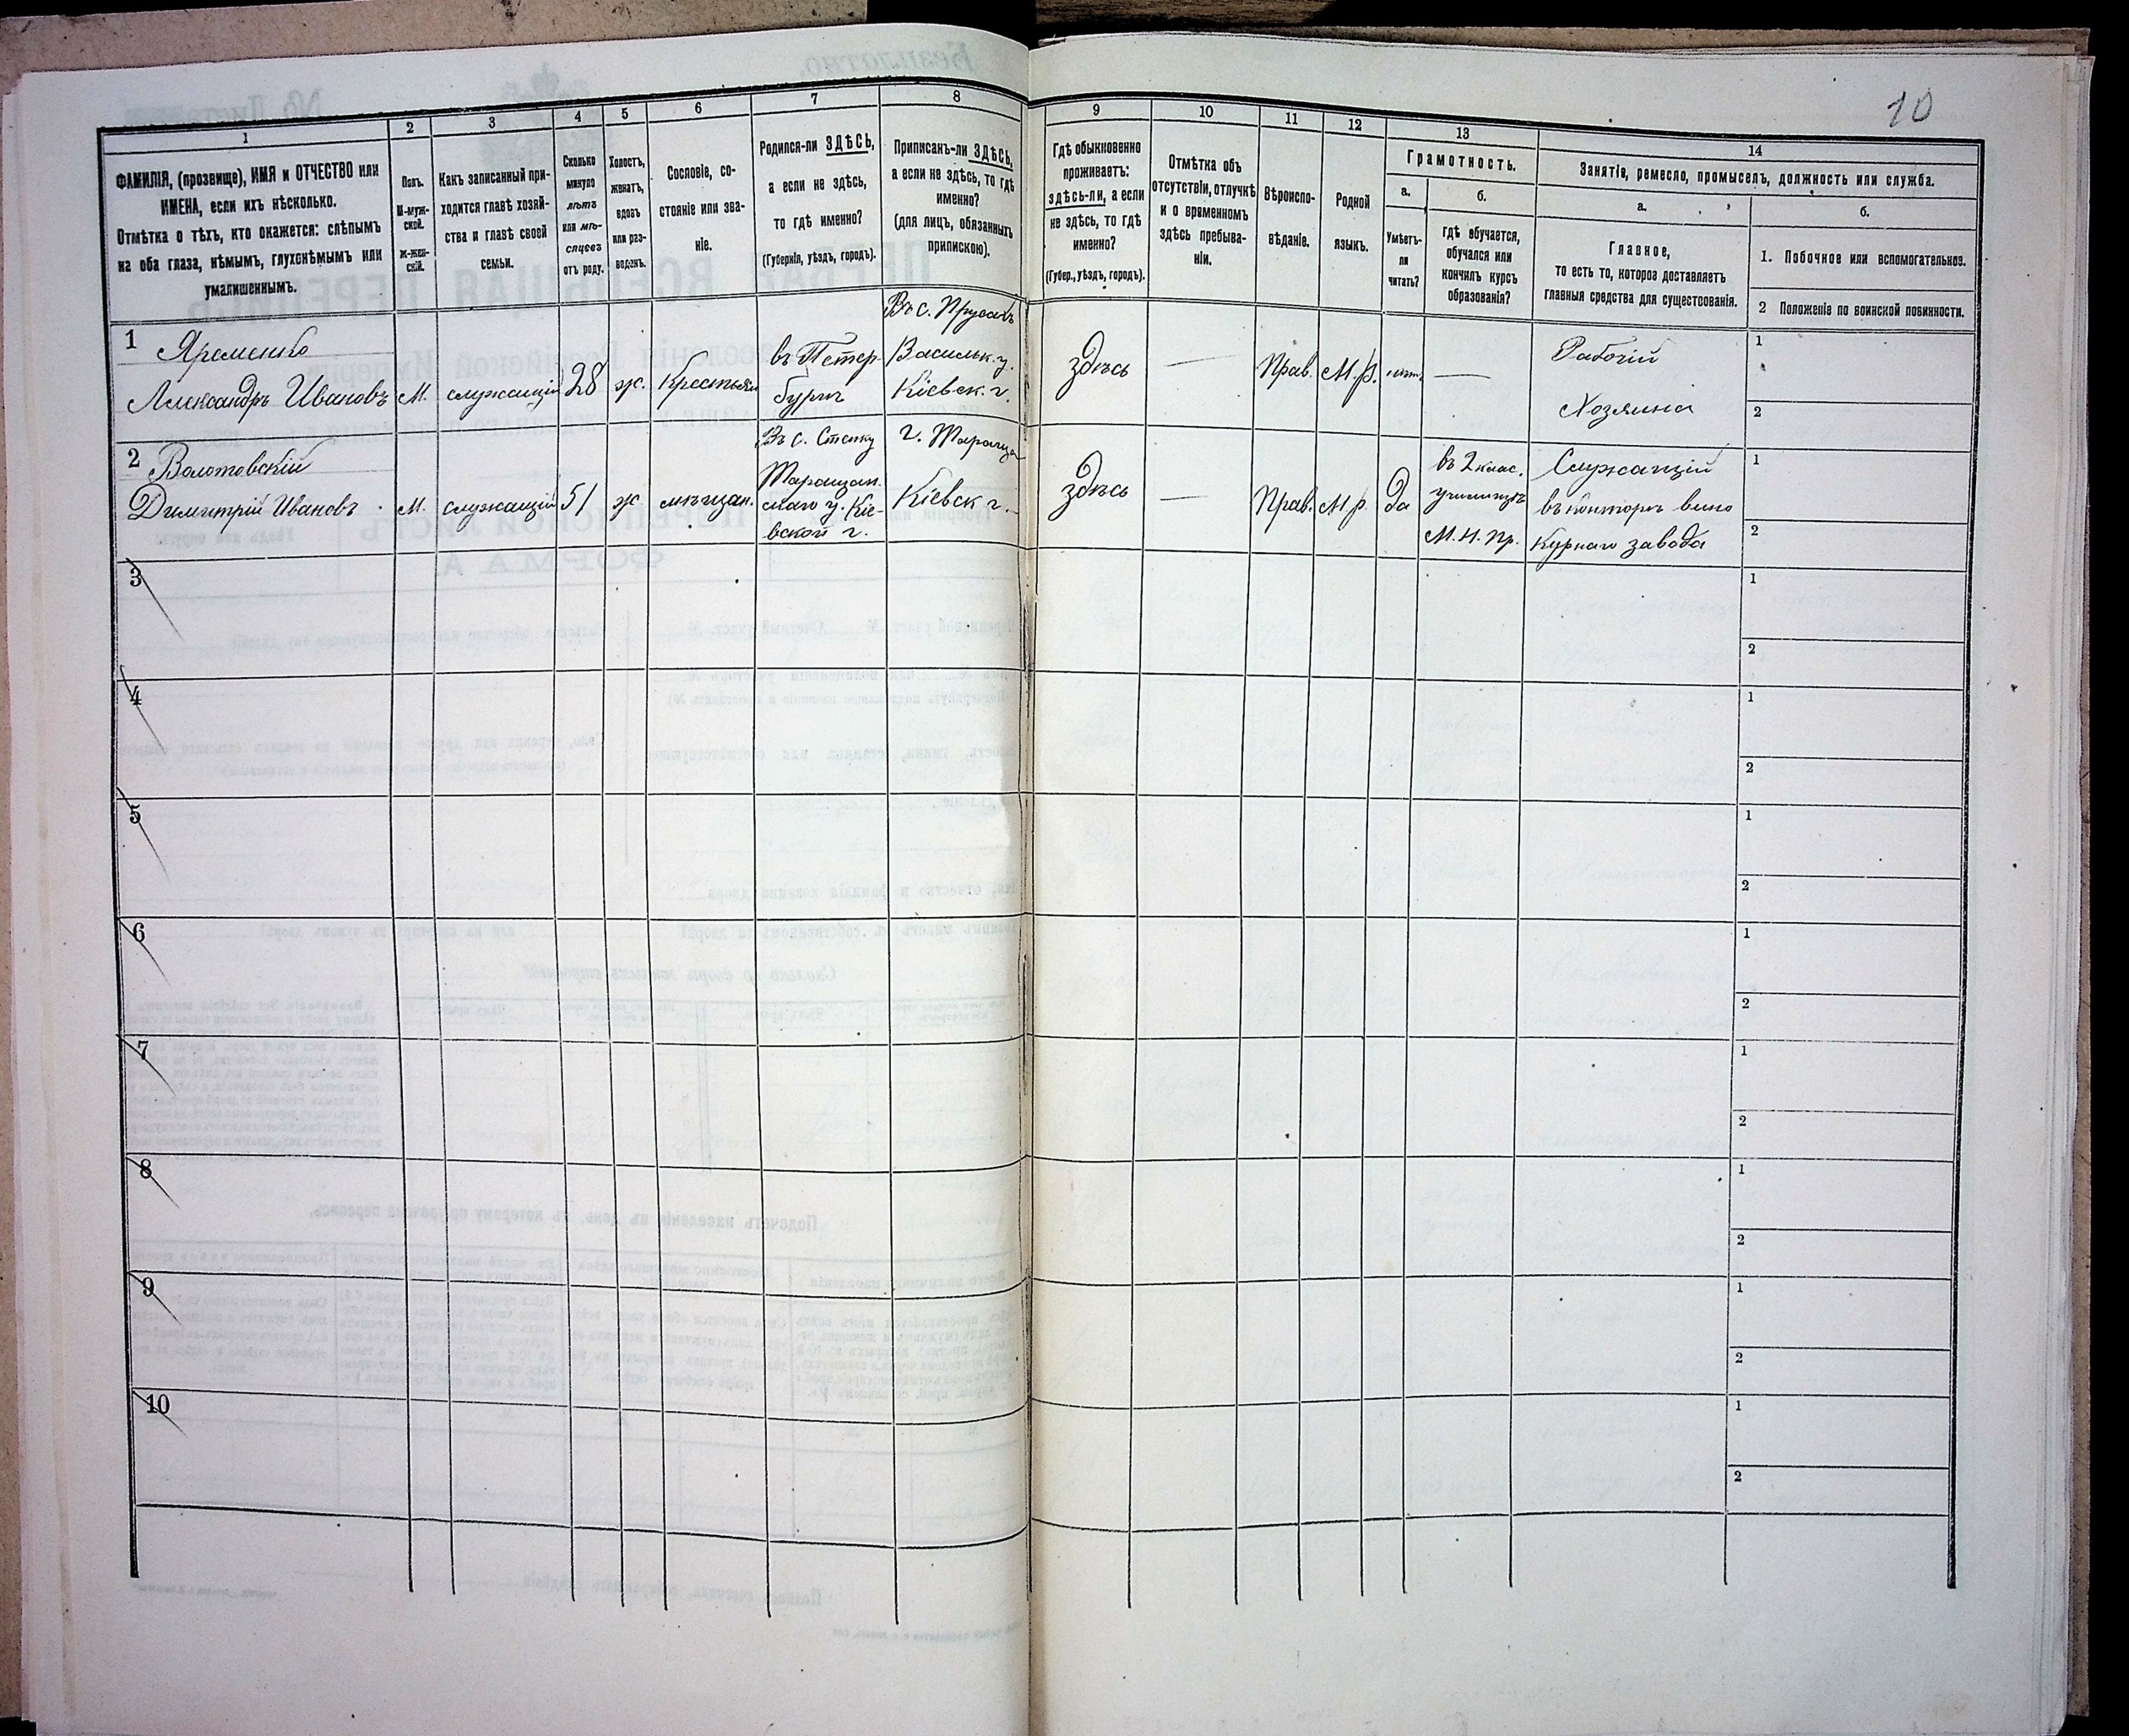 10
1
2
3
4
5
6
7
8
9
10
11
12
13
14
ФАМИЛІЯ, (прозвище), ИМЯ и ОТЧЕСТВО или
ИМЕНА, если ихъ нѣсколько.
Отмѣтка о тѣхъ, кто окажется: слѣпымъ
на оба глаза, нѣмымъ, глухонѣмымъ или
умалишеннымъ.
Полъ.
М-муж-
ской.
Ж-жен-
скій.
Какъ записанный при-
ходится главѣ хозяй-
ства и главѣ своей
семьи.
Сколько
минуло
лѣтъ
или мѣ-
сяцевъ
отъ роду.
Холостъ,
женатъ,
вдовъ
или раз-
веденъ.
Сословіе, со-
стояніе или зва-
ніе.
Родился-ли ЗДѢСЬ,
а если не здѣсь,
то гдѣ именно?
(Губернія, уѣздъ, городъ).
Приписанъ-ли ЗДѢСЬ,
а если не здѣсь, то гдѣ
именно?
(для лицъ, обязанныхъ
припискою).
Гдѣ обыкновенно
проживаетъ:
здѣсь-ли, а если
не здѣсь, то гдѣ
именно?
(Губер., уѣздъ, городъ).
Отмѣтка объ
отсутствіи, отлучкѣ
и о временномъ
здѣсь пребыва-
ніи.
Вѣроиспо-
вѣданіе.
Родной
языкъ.
Грамотность.
а.
б.
Умѣетъ-
ли
читать?
гдѣ обучается,
обучался или
кончилъ курсъ
образованія?
Занятіе, ремесло, промыселъ, должность или служба.
а.
б.
Главное,
то есть то, которое доставляетъ
главныя средства для существованія.
1. Побочное или вспомогательное.
2 Положеніе по воинской повинности.
1
Яременко
Александръ Ивановъ
М.
служащій
28
ж.
Крестьян
въ Петер-
бургѣ
Въ с.
Васильк. у.
Кіевск. г.
здѣсь
—
Прав.
М.р.
—
Рабочій
Хозяина
1
2
2
Болотовскій
Димитрій Ивановъ
М.
служащій
51
ж
мѣщан.
Въ с.
Таращан.
скаго у. Кіе-
вской г.
г. Тараща
Кіевск г.
здѣсь
—
Прав.
М.р.
да
въ 2 клас.
училищѣ
М.Н.Пр.
Служащій
въ конторѣ вино
курнаго завода
1
2
3
1
2
4
1
2
5
1
2
6
1
2
7
1
2
8
1
2
9
1
2
10
1
2